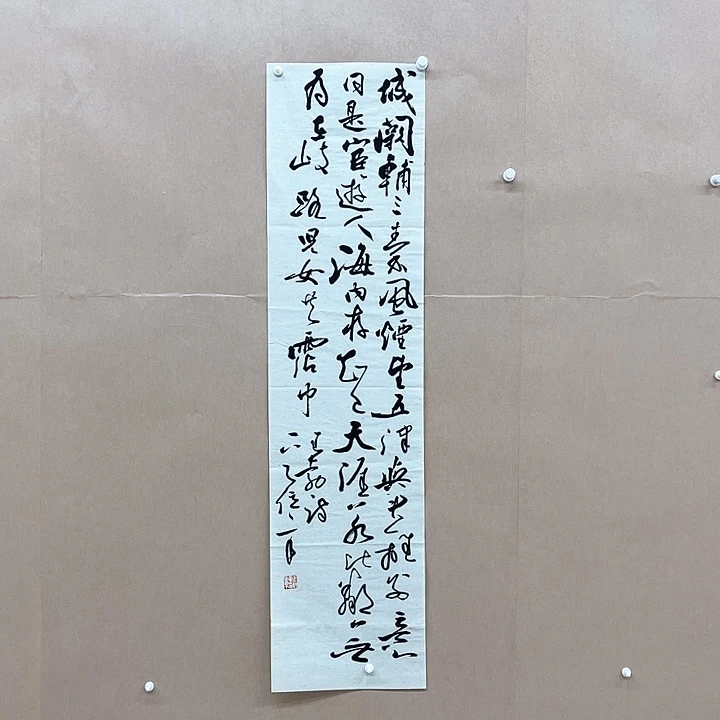 城闕輔三秦風煙望五津與君離別意
同是宦遊人海内存知己天涯若比鄰無
為在岐路兒女共霑巾
王勃詩